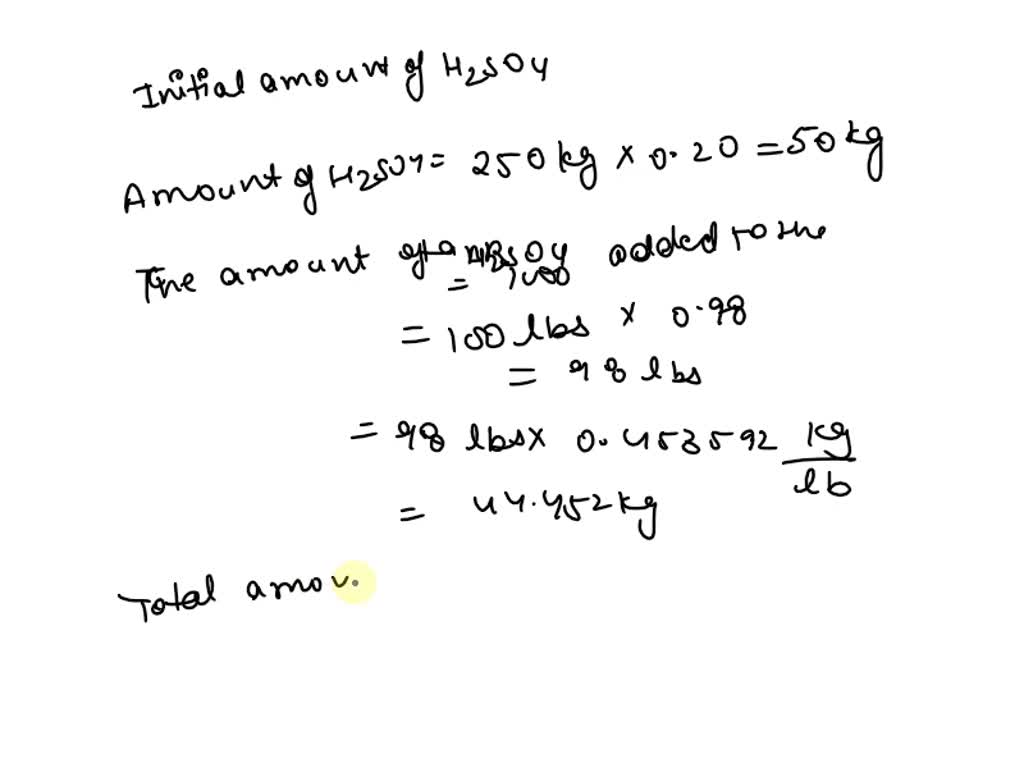 Initial amount of H2SO4
Amount of H2SO4 = 250 kg × 0.20 = 50 kg
The amount added to the
= 100 lbs × 0.98
= 98 lbs
= 98 lbs × 0.453592 kg/lb
= 44.452 kg
Total amou